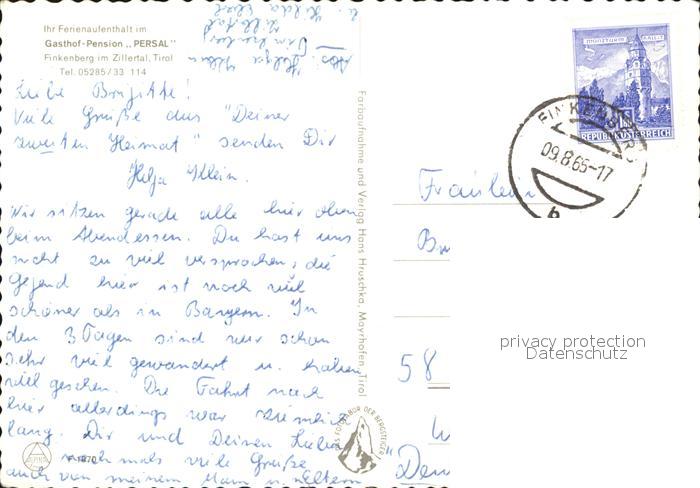 Ihr Ferienaufenthalt im
Gasthof-Pension „PERSAL"
Finkenberg im Zillertal, Tirol
Tel. 05285/33 114
Liebe Brigitte!
Viele Grüße aus "Deiner
zweiten Heimat" senden Dir
Helga Klein.
Wir sitzen gerade alle hier oben
beim Abendessen. Du hast uns
nicht zu viel versprochen, die
Gegend hier ist noch viel
schöner als in Bayern. In
den 3 Tagen sind wir schon
sehr viel gewandert u. haben
viel gesehen. Die Fahrt nach
hier allerdings war ziemlich
lang. Dir und Deinen Lieben
nochmals viele Grüße
auch von meinem Mann u. Eltern
Abs. Helga Klein
Farbaufnahme und Verlag Hans Hruschka, Mayrhofen, Tirol
DAS FOTO NUR DER BERGSTEIGER
MÜNZTURM
REPUBLIK ÖSTERREICH
FINKENBERG
09.8.65-17
b
Fräulein
58
privacy protection
Datenschutz